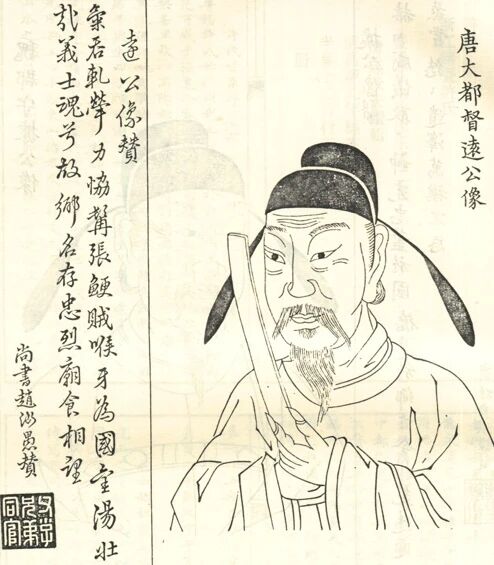 唐大都督遠公像
遠公像贊
氣吞軋犖力協髯張鯁賊喉牙為國金湯壯
哉義士魂兮故鄉名存忠烈廟食相望
尚書趙汝愚贊
父子
兄弟
同官